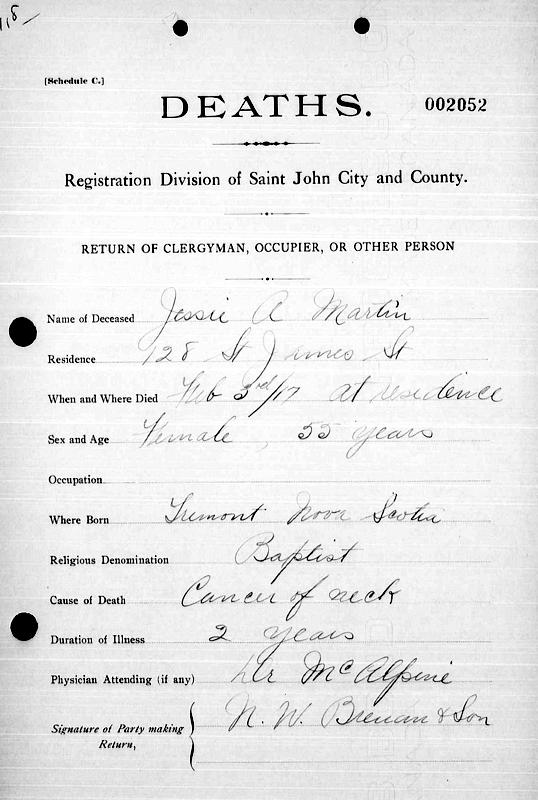 [Schedule C.]
DEATHS.
002052
Registration Division of Saint John City and County.
RETURN OF CLERGYMAN, OCCUPIER, OR OTHER PERSON
Name of Deceased Jessie A Martin
Residence 128 St James St
When and Where Died Feb 3rd/17 at residence
Sex and Age Female, 55 years
Occupation
Where Born Tremont Nova Scotia
Religious Denomination Baptist
Cause of Death Cancer of neck
Duration of Illness 2 years
Physician Attending (if any) Dr McAlpine
Signature of Party making Return, N. W. Brenan & Son